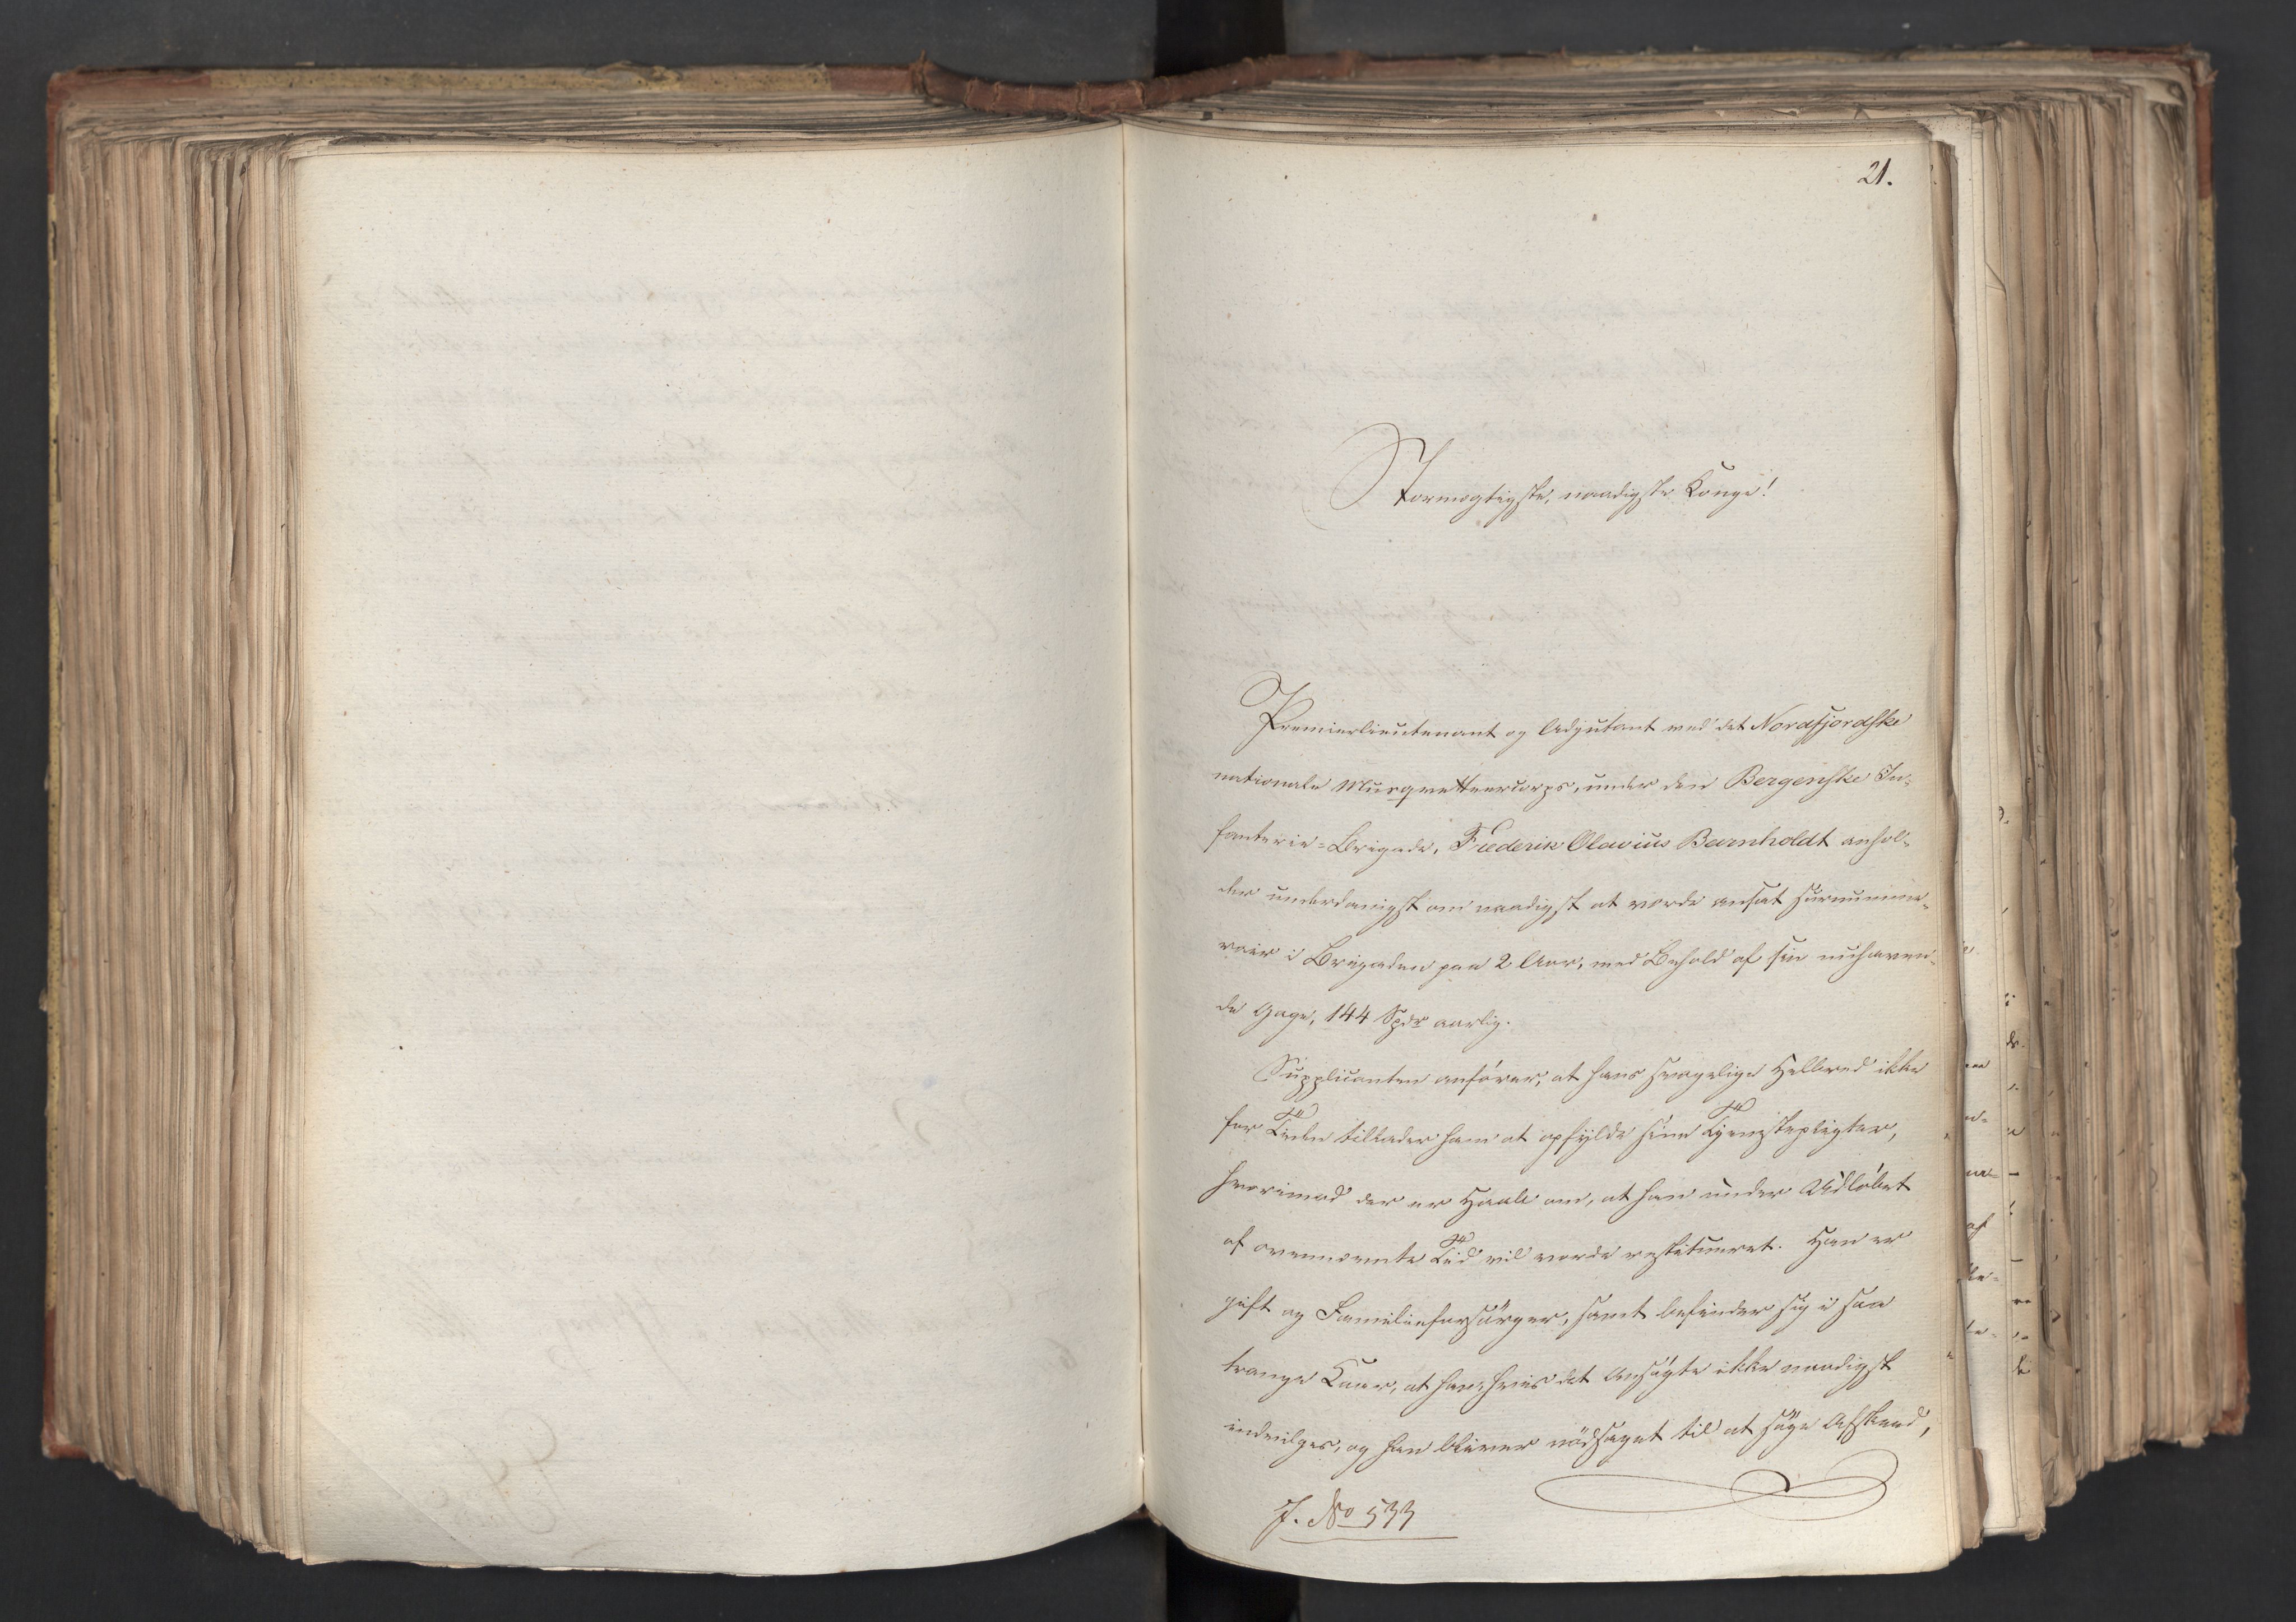 21.
Stormægtigste, naadigste Konge!
Premierlieutenant og Adjutant ved det Nordfjordske
nationale Musqvetteercorps, under den Bergenske In-
fanterie-Brigade, Frederik Olavius Barnholdt anhol-
der underdanigst om naadigst at vorde ansat surnumme-
rair i Brigaden paa 2 Aar, med Behold af sin nuhaven-
de Gage, 144 Spdr aarlig.
Supplicanten anfører, at hans svagelige Helbred ikke
for Tiden tillader ham at opfylde sine Tjenstepligter,
hvorimod der er Haab om, at han under Udløbet
af ovennævnte Tid vil vorde restitueret. Han er
gift og Familieforsørger, samt befinder sig i saa
trange Kaar, at han, hvis det Ansøgte ikke naadigst
indvilges, og han bliver nødsaget til at søge Afskeed,
J. No 533